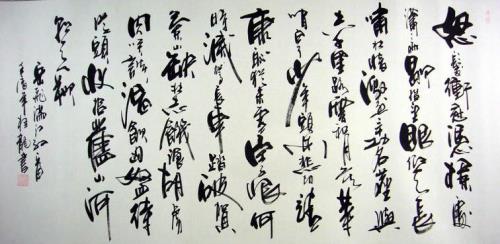 怒髮衝冠憑欄處
瀟瀟雨歇抬望眼仰天長
嘯壯懷激烈三十功名塵與
土八千里路雲和月莫等
閒白了少年頭空悲切靖
康恥猶未雪臣子恨何
時滅駕長車踏破賀
蘭山缺壯志飢餐胡虜
肉笑談渴飲匈奴血待
從頭收拾舊山河
朝天闕
岳飛滿江紅
書